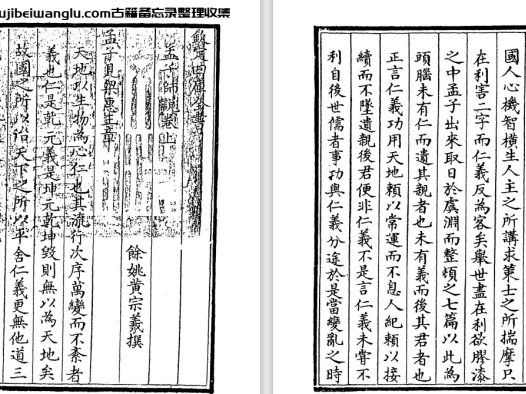 ujibeiwanglu.com古籍备忘录整理收集
欽定四庫全書
孟子師說卷上
餘姚黃宗羲撰
孟子見梁惠王章
天地以生物為心仁也其流行次序萬變而不紊者
義也仁是乾元義是坤元乾坤毀則無以為天地矣
故國之所以治天下之所以平舍仁義更無他道三
國人心機智橫生人主之所講求策士之所揣摩只
在利害二字而仁義反為客矣舉世盡在利欲膠漆
之中孟子出來取日於虞淵而整頓之七篇以此為
頭腦未有仁而遺其親者也未有義而後其君者也
正言仁義功用天地賴以常運而不息人紀賴以接
續而不墜遺親後君便非仁義不是言仁義未嘗不
利自後世儒者事功與仁義分途於是當變亂之時